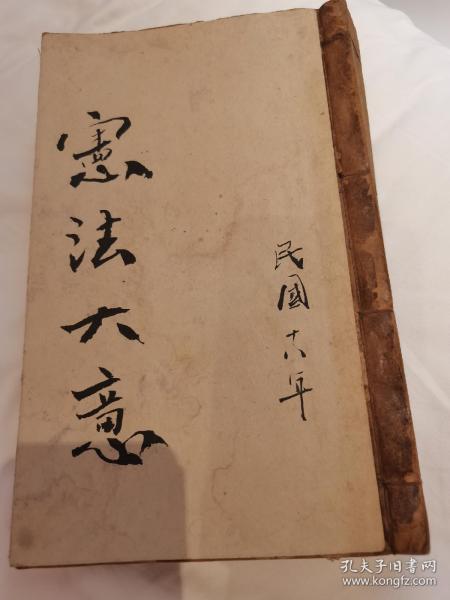 憲法大意
民國十八年
孔夫子旧书网
www.kongfz.com